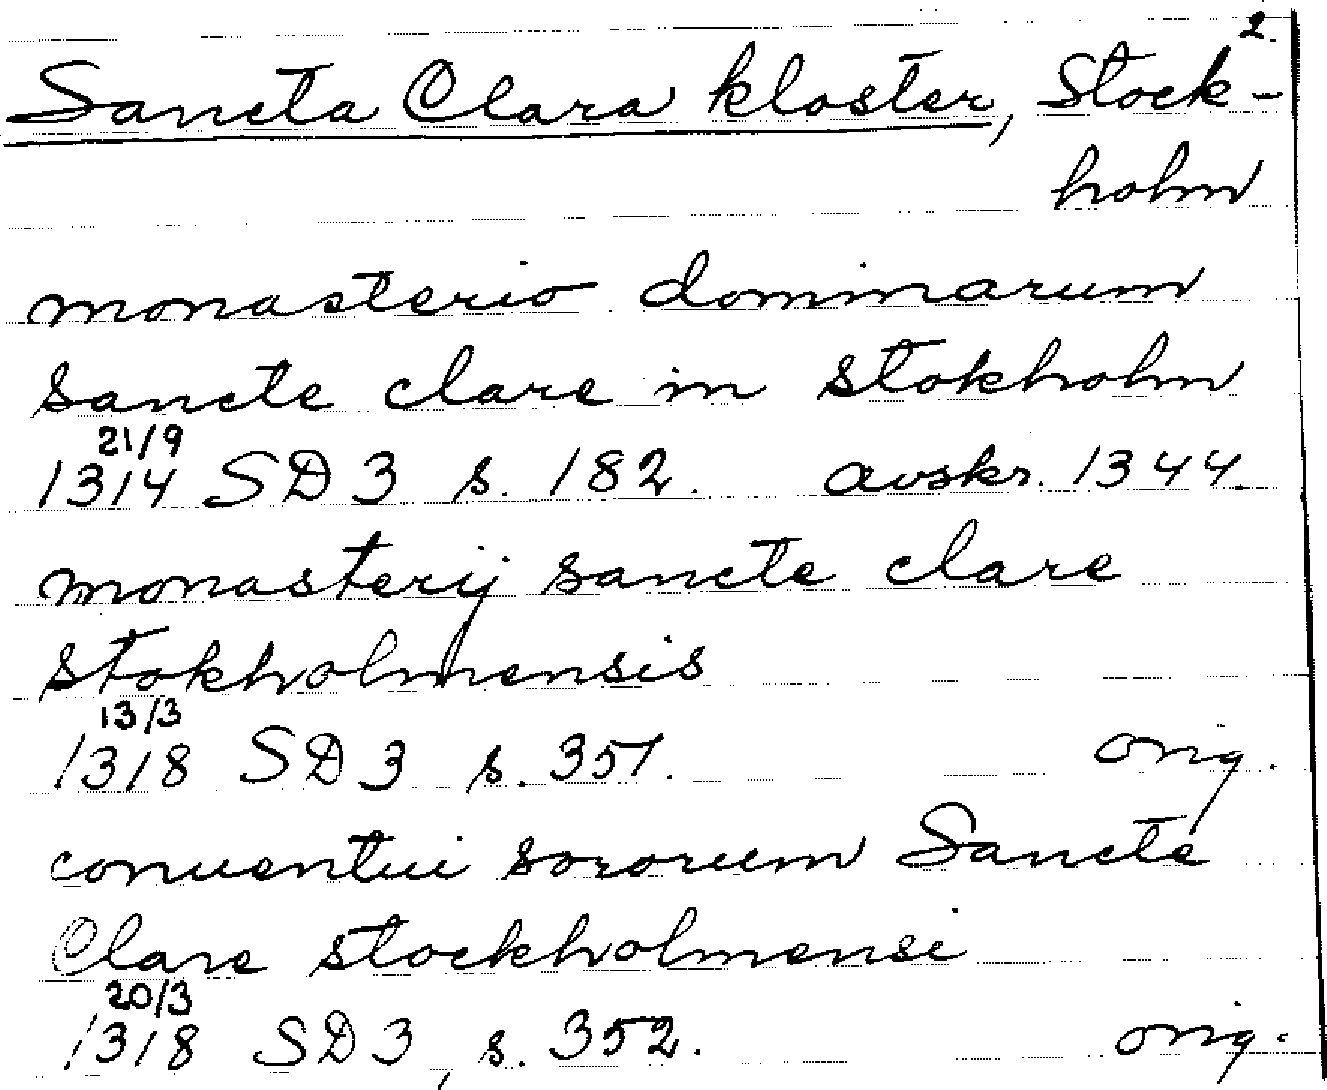 2.
Sancta Clara kloster, Stock-
holm
monasterio dominarum
sancte clare in stokholm
21/9
1314 SD 3 s. 182. avskr. 1344.
monasterij sancte clare
stokholmensis
13/3
1318 SD 3 s. 351. orig.
conuentui sororum Sancte
Clare stockholmensi
20/3
1318 SD 3, s. 352. orig.